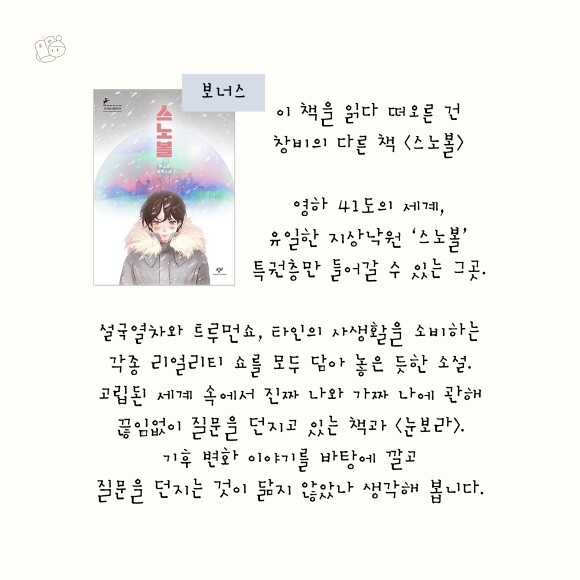 보너스
스노볼
이 책을 읽다 떠오른 건
창비의 다른 책 〈스노볼〉
영하 41도의 세계,
유일한 지상낙원 ‘스노볼’
특권층만 들어갈 수 있는 그곳.
설국열차와 트루먼쇼, 타인의 사생활을 소비하는
각종 리얼리티 쇼를 모두 담아 놓은 듯한 소설.
고립된 세계 속에서 진짜 나와 가짜 나에 관해
끊임없이 질문을 던지고 있는 책과 〈눈보라〉.
기후 변화 이야기를 바탕에 깔고
질문을 던지는 것이 닮지 않았나 생각해 봅니다.